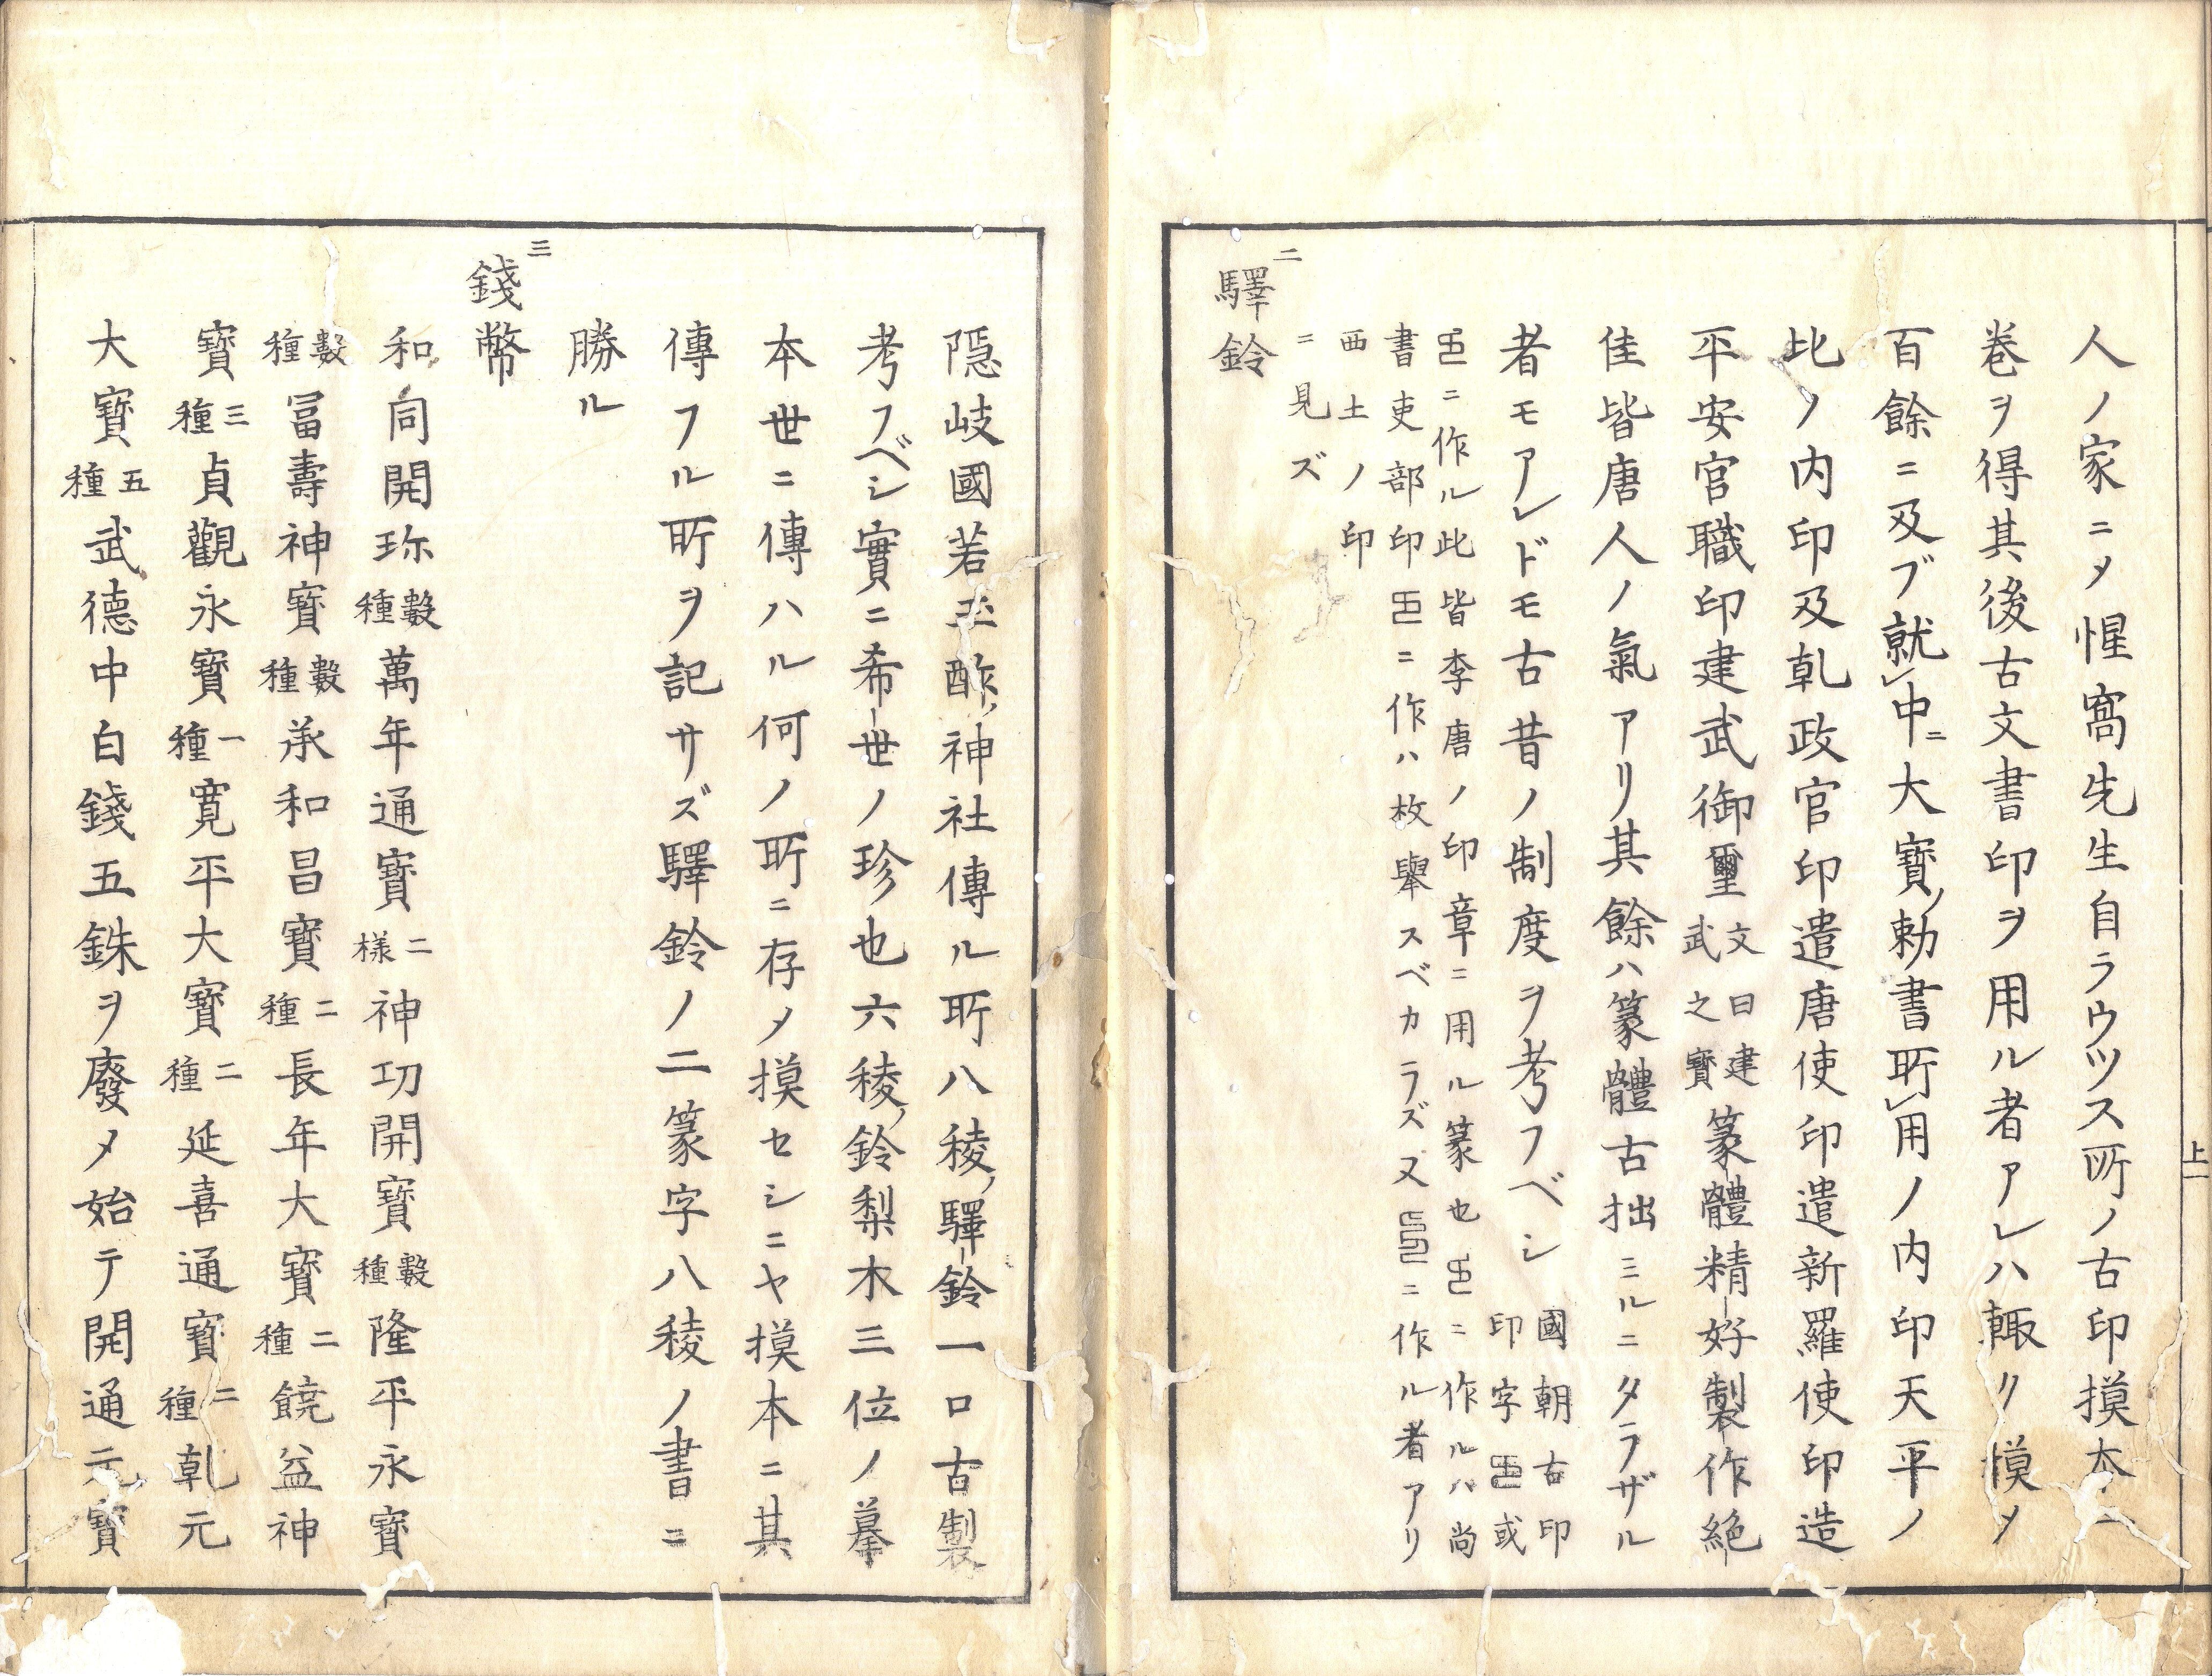 人ノ家ニメ惺窩先生自ラウツス所ノ古印摸本一
巻ヲ得其後古文書印ヲ用ル者アレハ輙ク摸メ
百餘ニ及ブ就中ニ大寶ノ勅書所用ノ内印天平ノ
比ノ内印及乹政官印遣唐使印遣新羅使印造
平安宮職印建武御璽文曰建武之寳篆體精好製作絶
佳皆唐人ノ氣アリ其餘ハ篆體古拙ミルニタラザル
者モアレドモ古昔ノ制度ヲ考フベシ國朝古印印字或
ニ作ル此皆李唐ノ印章ニ用ル篆也ニ作ルハ尚
書吏部印ニ作ハ枚舉スベカラズ又ニ作ル者アリ
西土ノ印
ニ見ズ
二
驛鈴
隠岐國若玉酢神社傳ル所八稜ノ驛鈴一口古製
考フベシ實ニ希世ノ珍也六稜ノ鈴梨木三位ノ摹
本世ニ傳ハル何ノ所ニ存メ摸セシニヤ摸本ニ其
傳フル所ヲ記サズ驛鈴ノ二篆字八稜ノ書ニ
勝ル
三
錢幣
和同開珎數種萬年通寳二樣神功開寳數種隆平永寳
數種冨壽神寳數種承和昌寳二種長年大寳二種饒益神
寳三種貞觀永寳一種寛平大寳二種延喜通寳二種乹元
大寳五種武德中白錢五銖ヲ廢メ始テ開通元寳
上一